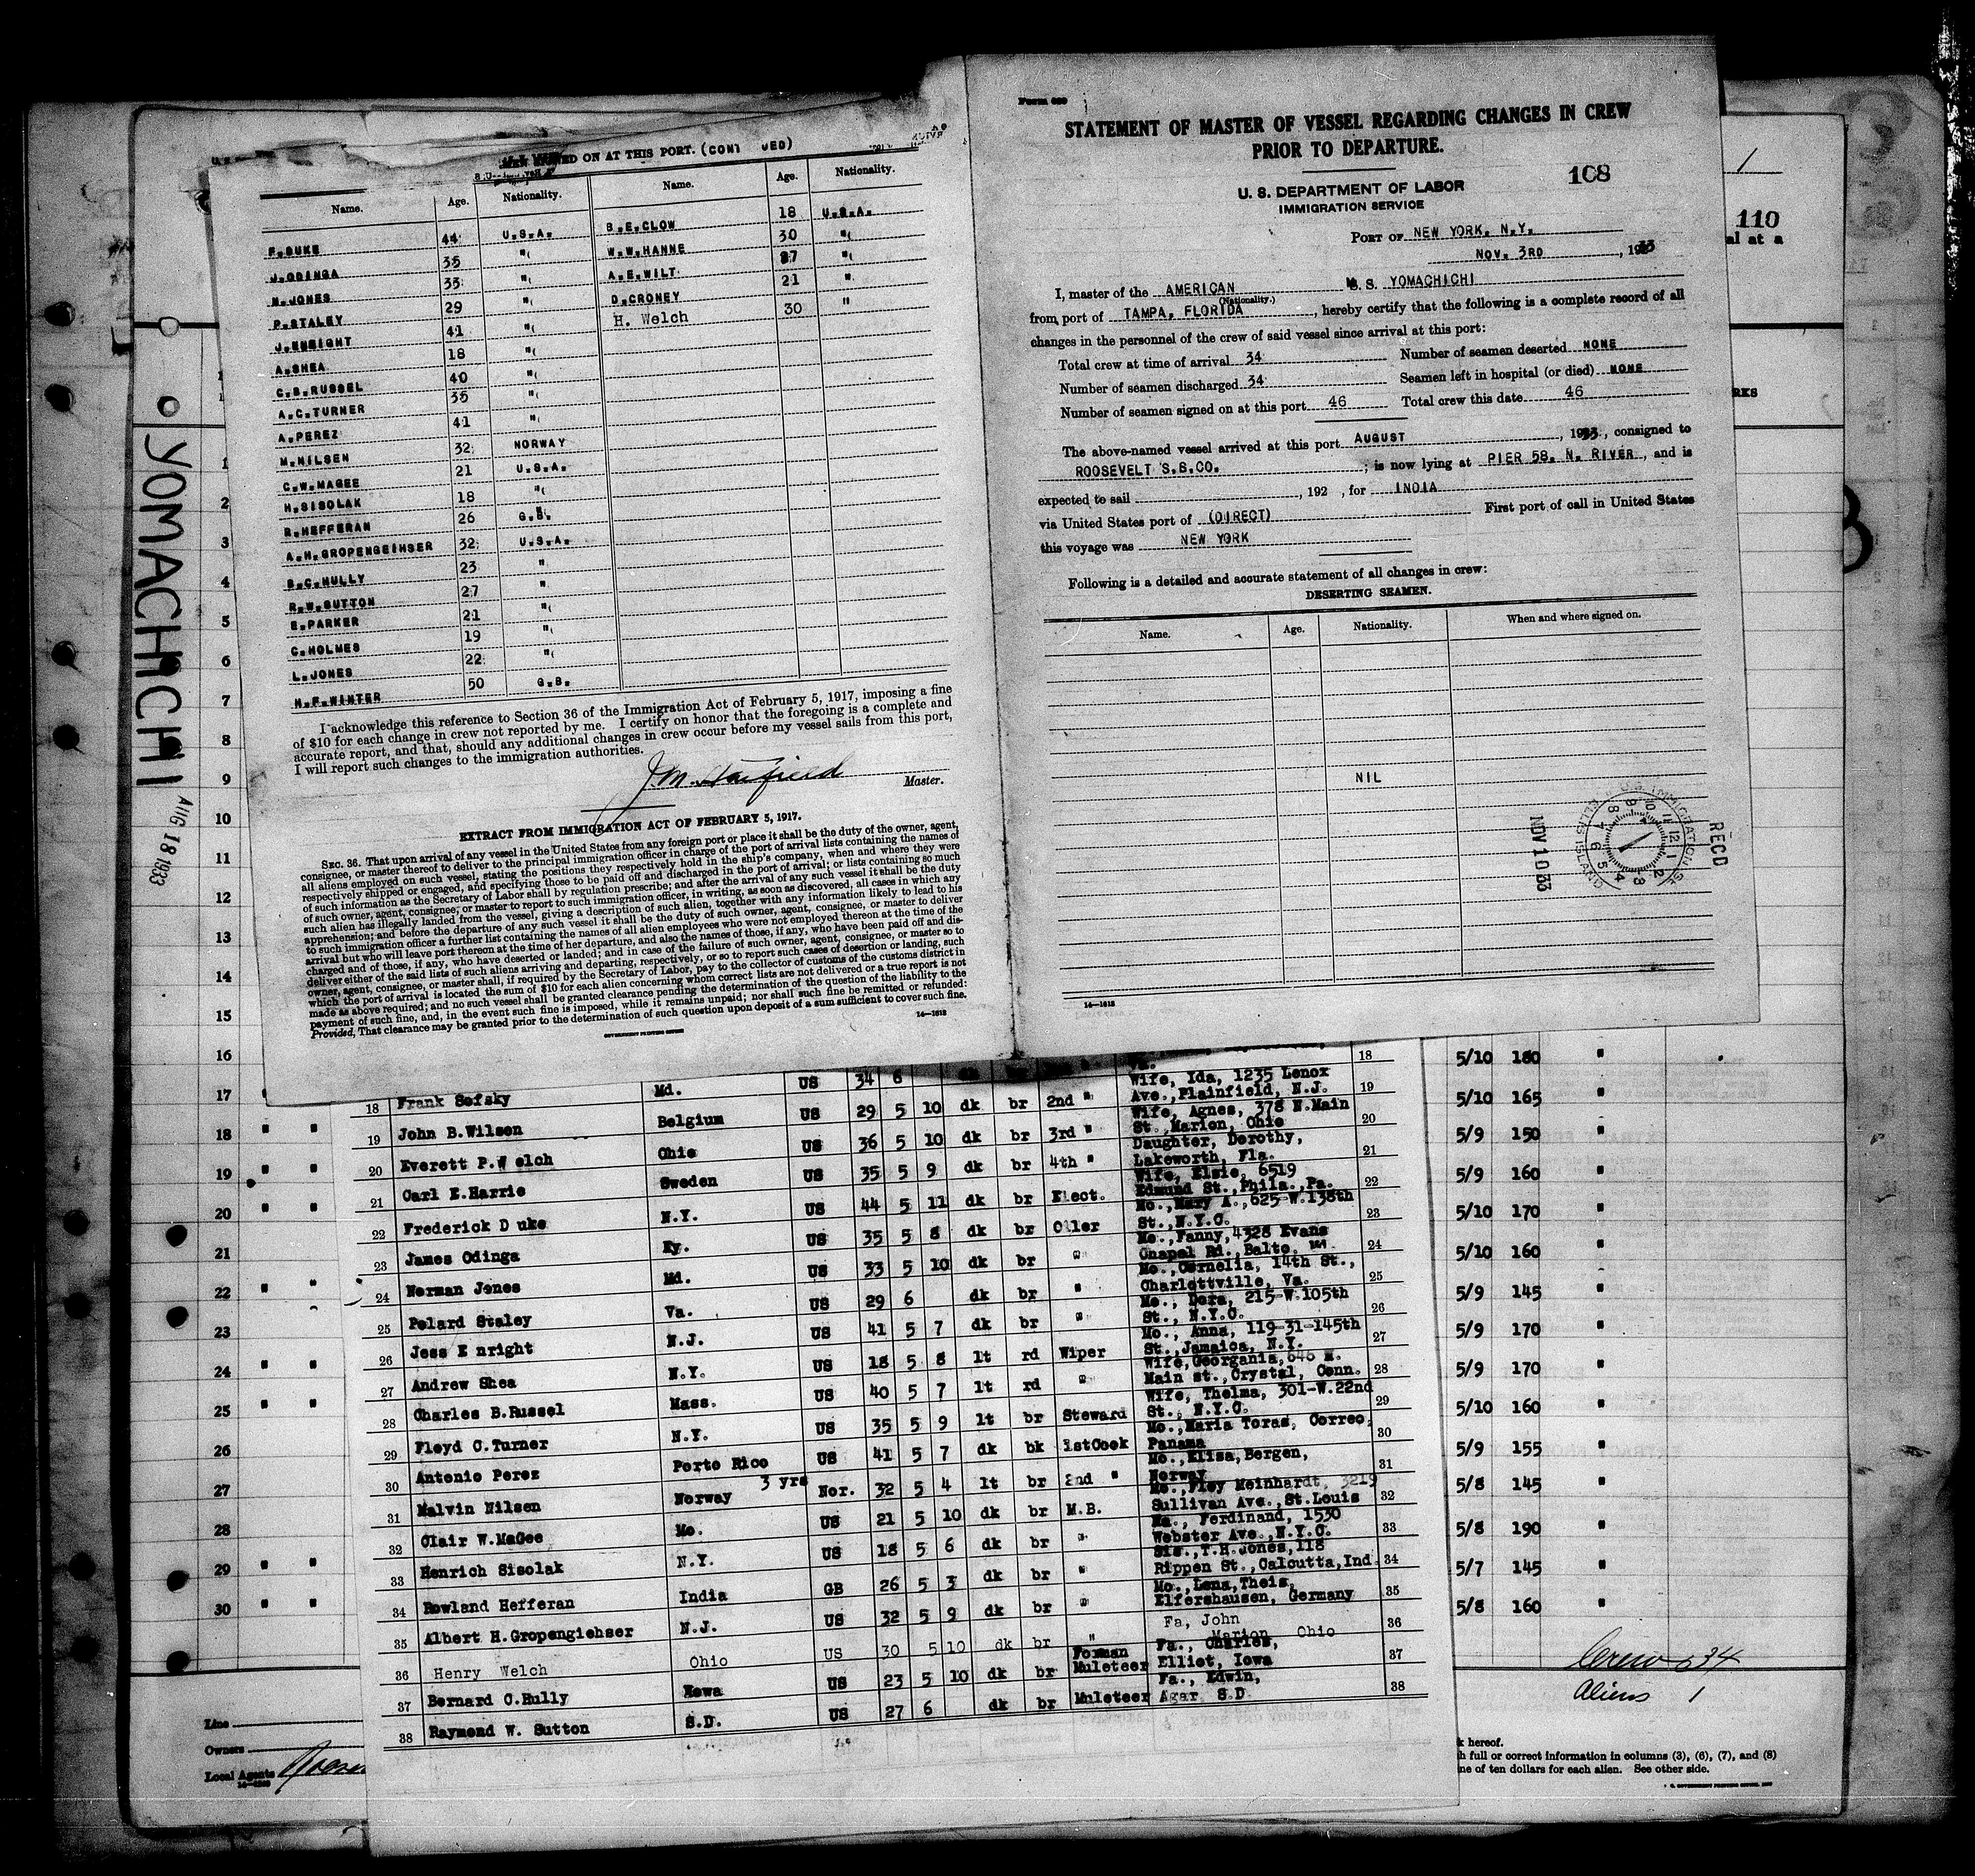 MEN SIGNED ON AT THIS PORT. (CONT UED)
Name. Age. Nationality. Name. Age. Nationality.
F. DUKE 44 U.S.A. B.E.CLOW 18 U.S.A.
J.ODINGA 35 " W.W.HANNE 30 "
N.JONES 33 " A.E.WILT 27 "
P.STALEY 29 " D.CRONEY 21 "
J.ENRIGHT 41 " H. Welch 30 "
A.SHEA 18 "
C.B.RUSSEL 40 "
A.C.TURNER 35 "
A.PEREZ 41 "
M.NILSEN 32 NORWAY
C.W.MAGEE 21 U.S.A.
H.SISOLAK 18 "
R.HEFFERAN 26 G.B.
A.H.GROPENGEIHSER 32 U.S.A.
B.C.HULLY 23 "
R.W.SUTTON 27 "
E.PARKER 21 "
C.HOLMES 19 "
L.JONES 22 "
H.F.WINTER 50 G.B.
I acknowledge this reference to Section 36 of the Immigration Act of February 5, 1917, imposing a fine
of $10 for each change in crew not reported by me. I certify on honor that the foregoing is a complete and
accurate report, and that, should any additional changes in crew occur before my vessel sails from this port,
I will report such changes to the immigration authorities.
Master.
EXTRACT FROM IMMIGRATION ACT OF FEBRUARY 5, 1917.
SEC. 36. That upon arrival of any vessel in the United States from any foreign port or place it shall be the duty of the owner, agent,
consignee, or master thereof to deliver to the principal immigration officer in charge of the port of arrival lists containing the names of
all aliens employed on such vessel, stating the positions they respectively hold in the ship's company, when and where they were
respectively shipped or engaged, and specifying those to be paid off and discharged in the port of arrival; or lists containing so much
of such information as the Secretary of Labor shall by regulation prescribe; and after the arrival of any such vessel it shall be the duty
of such owner, agent, consignee, or master to report to such immigration officer, in writing, as soon as discovered, all cases in which any
such alien has illegally landed from the vessel, giving a description of such alien, together with any information likely to lead to his
apprehension; and before the departure of any such vessel it shall be the duty of such owner, agent, consignee, or master to deliver
to such immigration officer a further list containing the names of all alien employees who were not employed thereon at the time of the
arrival but who will leave port thereon at the time of her departure, and also the names of those, if any, who have been paid off and dis-
charged and of those, if any, who have deserted or landed; and in case of the failure of such owner, agent, consignee, or master so to
deliver either of the said lists of such aliens arriving and departing, respectively, or so to report such cases of desertion or landing, such
owner, agent, consignee, or master shall, if required by the Secretary of Labor, pay to the collector of customs of the customs district in
which the port of arrival is located the sum of $10 for each alien concerning whom correct lists are not delivered or a true report is not
made as above required; and no such vessel shall be granted clearance pending the determination of the question of the liability to the
payment of such fine, and, in the event such fine is imposed, while it remains unpaid; nor shall such fine be remitted or refunded:
Provided, That clearance may be granted prior to the determination of such question upon deposit of a sum sufficient to cover such fine.
GOVERNMENT PRINTING OFFICE 14—1612
Form 689
STATEMENT OF MASTER OF VESSEL REGARDING CHANGES IN CREW
PRIOR TO DEPARTURE.
108
U. S. DEPARTMENT OF LABOR
IMMIGRATION SERVICE
PORT OF NEW YORK, N.Y.
NOV. 3RD, 1933
I, master of the AMERICAN S. S. YOMACHICHI
(Nationality.)
from port of TAMPA, FLORIDA, hereby certify that the following is a complete record of all
changes in the personnel of the crew of said vessel since arrival at this port:
Total crew at time of arrival 34 Number of seamen deserted NONE
Number of seamen discharged 34 Seamen left in hospital (or died) NONE
Number of seamen signed on at this port 46 Total crew this date 46
The above-named vessel arrived at this port AUGUST, 1933, consigned to
ROOSEVELT S.S.CO.; is now lying at PIER 58, N. RIVER, and is
expected to sail , 192 , for INDIA
via United States port of (DIRECT) First port of call in United States
this voyage was NEW YORK
Following is a detailed and accurate statement of all changes in crew:
DESERTING SEAMEN.
Name. Age. Nationality. When and where signed on.
NIL
RECD
U.S. IMMIGRATION SER
ELLIS ISLAND
NOV 10 33
14—1612
1
110
al at a
RKS
YOMACHICHI
AUG 18 1933
1
2
3
4
5
6
7
8
9
10
11
12
13
14
15
16
17
18
19
20
21
22
23
24
25
26
27
28
29
30
Va. 18
18 Frank Sofsky Md. US 34 6 dk Wife, Ida, 1235 Lenox Ave.,Plainfield, N.J. 19
19 John B.Wilson Belgium US 29 5 10 dk br 2nd " Wife, Agnes, 378 N.Main St.,Marion, Ohio 20
20 Everett P.Welch Ohio US 36 5 10 dk br 3rd " Daughter, Dorothy, Lakeworth, Fla. 21
21 Carl E.Harrie Sweden US 35 5 9 dk br 4th " Wife, Elsie, 6519 Edmund St.,Phila.,Pa. 22
22 Frederick Duke N.Y. US 44 5 11 dk br Elect. Mo.,Mary A.,625-W.138th St.,N.Y.C. 23
23 James Odinga Ky. US 35 5 8 dk br Oiler Mo.,Fanny,4328 Evans Chapel Rd.,Balto. Md. 24
24 Norman Jones Md. US 33 5 10 dk br " Mo.,Cornelia, 14th St., Charlottville, Va. 25
25 Polard Staley Va. US 29 6 dk br " Mo., Dora, 215-W.105th St., N.Y.C. 26
26 Jess Enright N.J. US 41 5 7 dk br " Mo., Anna, 119-31-145th St.,Jamaica, N.Y. 27
27 Andrew Shea N.Y. US 18 5 8 lt rd Wiper Wife,Georgania,646 E. Main st.,Crystal, Conn. 28
28 Charles B.Russel Mass. US 40 5 7 lt rd " Wife, Thelma, 301-W.22nd St., N.Y.C. 29
29 Floyd C.Turner N.Y. US 35 5 9 lt br Steward Mo.,Maria Toras, Correo, Panama 30
30 Antonio Perez Porto Rico US 41 5 7 dk bk 1stCook Mo.,Elisa,Bergen, Norway 31
31 Malvin Nilsen Norway 3 yrs Nor. 32 5 4 lt br 2nd " Mo.,Floy Meinhardt, 3219 Sullivan Ave.,St.Louis 32
32 Clair W.MaGee Mo. US 21 5 10 dk br M.B. Fa., Ferdinand, 1530 Webster Ave.,N.Y.C. 33
33 Henrich Sisolak N.Y. US 18 5 6 dk br " Sis.,T.H.Jones,118 Rippen St.,Calcutta,Ind. 34
34 Rowland Hefferan India GB 26 5 3 dk br " Mo.,Lena,Theis, Elfershausen, Germany 35
35 Albert H.Gropengiehser N.J. US 32 5 9 dk br " Fa, John Marion Ohio 36
36 Henry Welch Ohio US 30 5 10 dk br " Fa., Charles, Elliot, Iowa 37
37 Bernard C.Hully Iowa US 23 5 10 dk br Forman Muleteer Fa., Edwin, Agar S.D. 38
38 Raymond W. Sutton S.D. US 27 6 dk br Muleteer
5/10 180 "
5/10 165 "
5/9 150 "
5/9 160 "
5/10 170 "
5/10 160 "
5/9 145 "
5/9 170 "
5/9 170 "
5/10 160 "
5/9 155 "
5/8 145 "
5/8 190 "
5/7 145 "
5/8 160 "
Crew 34
Aliens 1
Line
Owners
Local Agents
k hereof.
h full or correct information in columns (3), (6), (7), and (8)
ne of ten dollars for each alien. See other side.